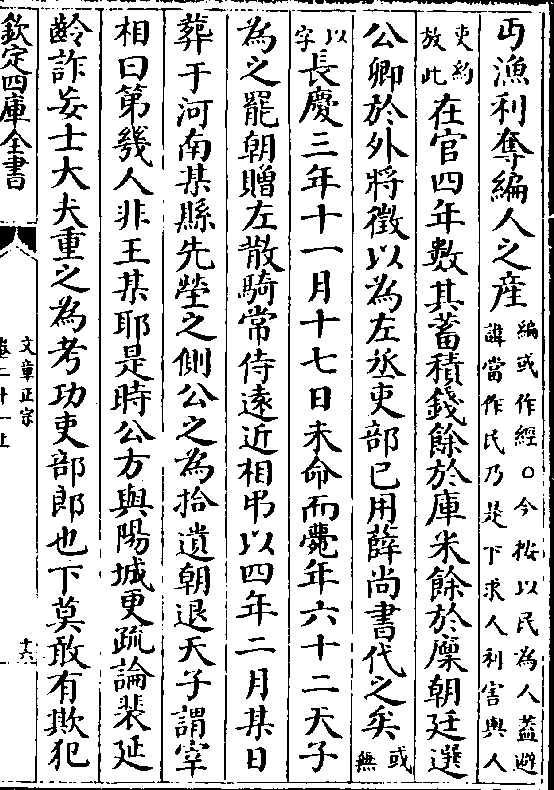 丏漁利奪編人之産編或作經○今按以民為人蓋避諱當作民乃是下求人利害與人
吏約放此在官四年數其蓄積錢餘於庫米餘於廩朝廷選
公卿於外將徴以為左丞吏部已用薛尚書代之矣或無
以字長慶三年十一月十七日未命而薨年六十二天子
為之罷朝贈左散騎常侍逺近相弔以四年二月某日
葬于河南某縣先塋之側公之為拾遺朝退天子謂宰
相曰第幾人非王某耶是時公方與陽城更疏論裴延
齡詐妄士大夫重之為考功吏部郎也下莫敢有欺犯
欽定四庫全書
文章正宗
卷二十一上
十六